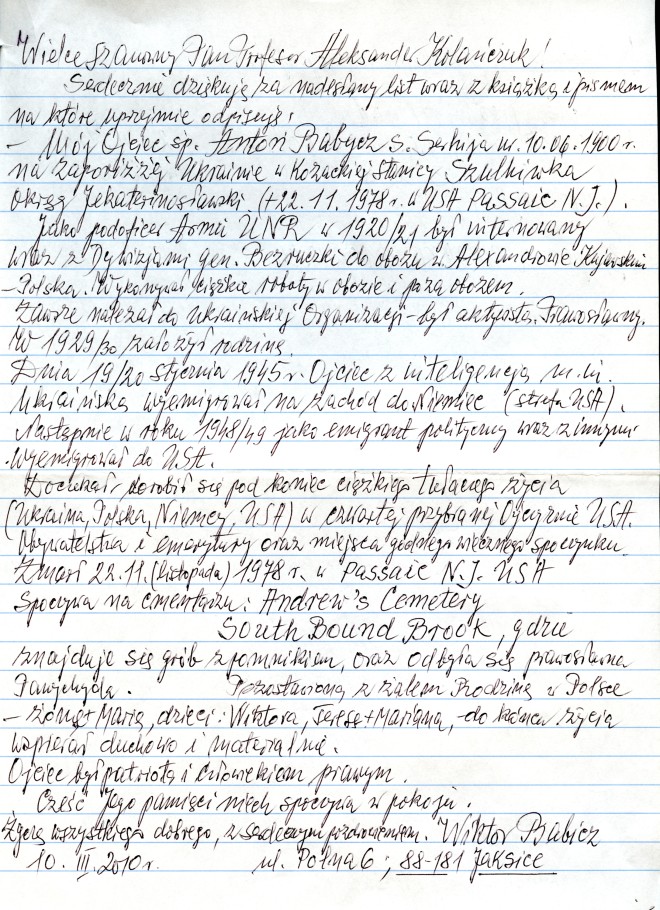 Wielce Szanowny Pan Profesor Aleksander Kolańczuk!
Serdecznie dziękuję za nadesłany list wraz z książką i pismem
na które uprzejmie odpisuję:
- Mój Ojciec śp. Antoń Babycz s. Serhija ur. 10.06.1900 r.
na zaporiżżej Ukrainie w Kozackiej Stanicy Szulhiwka
okręg Jekaterinosławski. (+22.11.1978 r. w USA Passaic N.J.).
Jako podoficer Armii UNR w 1920/21 był internowany
wraz z Dywizjami gen. Bezruczki do obozu w Alexandrowie Kujawskim
- Polska. Wykonywał ciężkie roboty w obozie i poza obozem.
Zawsze należał do Ukraińskiej Organizacji - był aktywistą. Prawosławny.
W 1929/30 założył rodzinę.
Dnia 19/20 stycznia 1945 r. Ojciec z inteligencją m.in.
Ukraińską wyemigrował na zachód do Niemiec (strefa USA).
Następnie w roku 1948/49 jako emigrant polityczny wraz z innymi
wyemigrował do USA.
Doczekał - dorobił się pod koniec ciężkiego tułaczego życia
(Ukraina, Polska, Niemcy, USA) w czwartej przybranej Ojczyźnie USA.
Obywatelstwa i emerytury oraz miejsca godnego wiecznego spoczynku.
Zmarł 22.11. (listopada) 1978 r. w Passaic N.J. USA
Spoczywa na cmentarzu: Andrew's Cemetery
South Bound Brook, gdzie
znajduje się grób z pomnikiem, oraz odbyła się prawosławna
Panychyda. Pozostawioną z żalem Rodzinę w Polsce
- żonę + Marię, dzieci: Wiktora, Teresę + Mariana, - do końca życia
wspierał duchowo i materialnie.
Ojciec był patriotą i człowiekiem prawym.
Cześć Jego pamięci niech spoczywa w pokoju.
Życzę wszystkiego dobrego, z serdecznymi pozdrowieniami. Wiktor Babicz
10. III. 2010 r. ul. Polna 6; 88-181 Jaksice